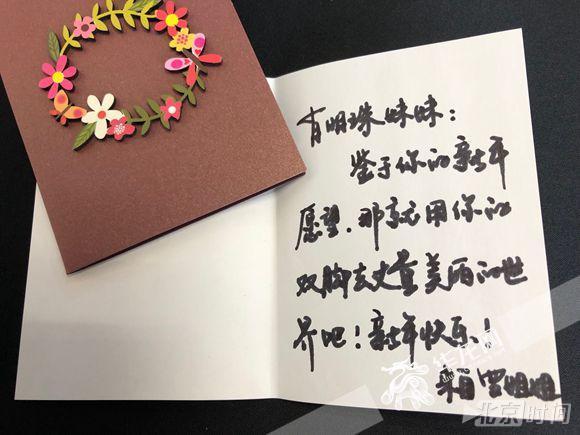 有明珠妹妹：
鉴于你的新年
愿望，那就用你的
双脚去丈量美丽的世
界吧！新年快乐！
罗姐姐
华龙网
北京时间